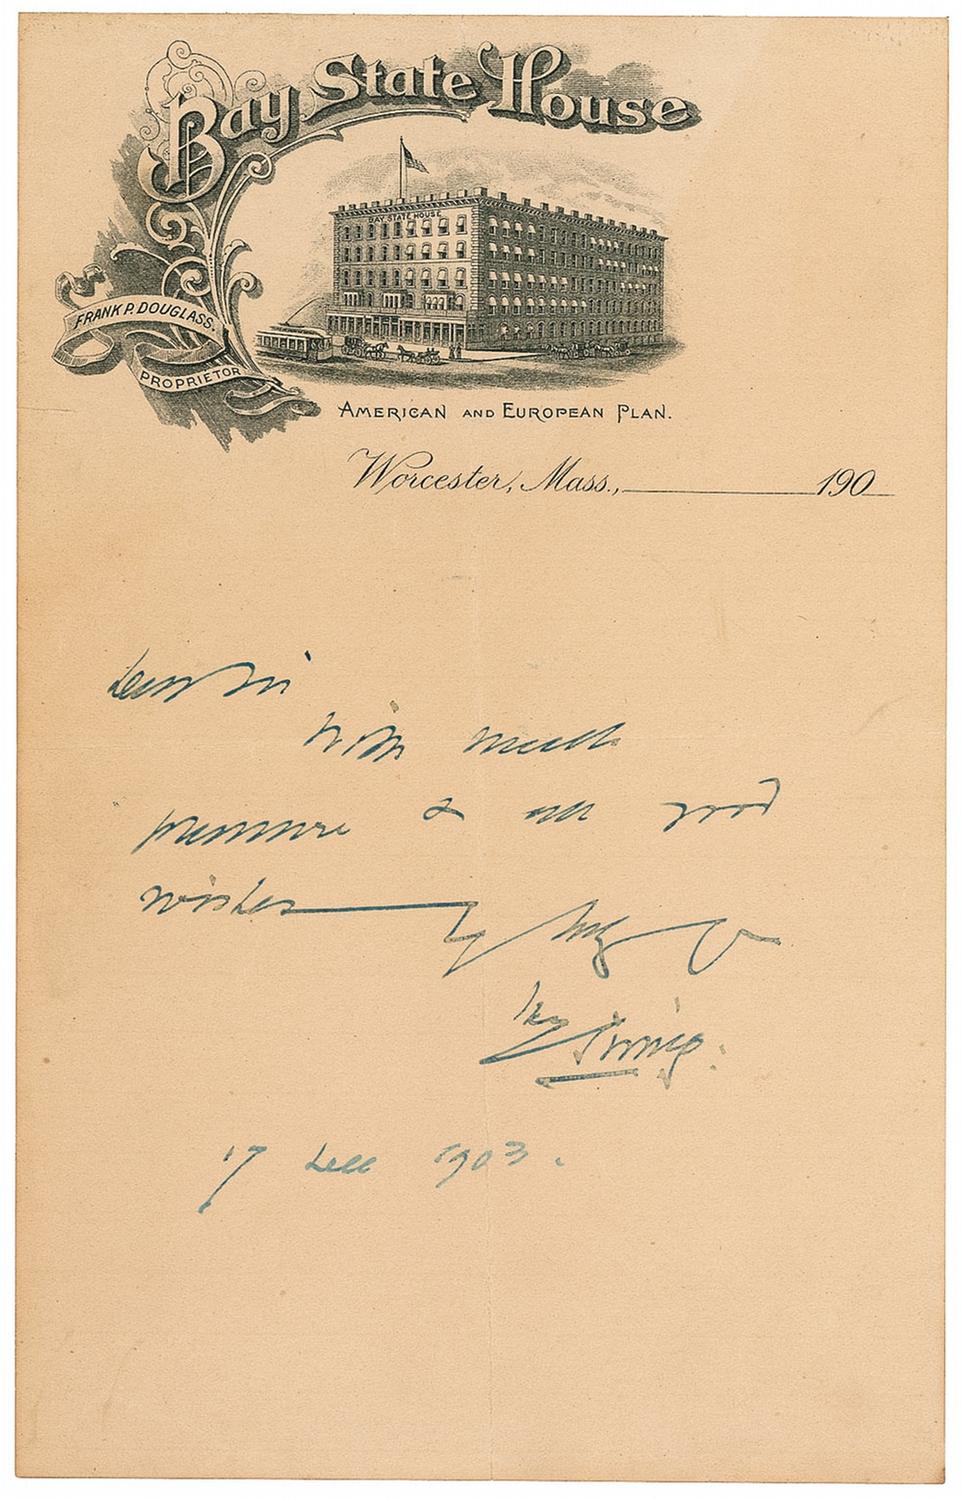 Bay State House
BAY STATE HOUSE
FRANK P. DOUGLASS.
PROPRIETOR
AMERICAN AND EUROPEAN PLAN.
Worcester, Mass., 190
Dear Sir
With much
pleasure & all good
wishes
Irving.
17 Dec 1903.